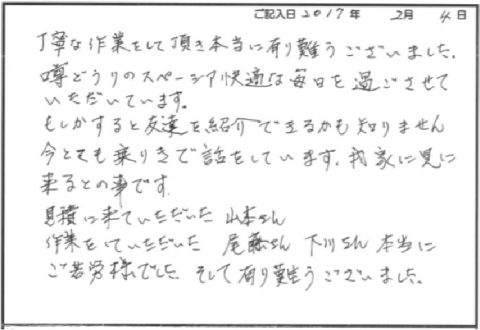 ご記入日 2017年 2月 4日
丁寧な作業をして頂き本当に有り難うございました。
噂どうりのスペーシア快適な毎日を過ごさせて
いただいています。
もしかすると友達を紹介できるかも知りません
今とても乗りきで話をしています。我家に見に
来るとの事です。
見積に来ていただいた 山本さん
作業をしていただいた 尾藤さん 下川さん 本当に
ご苦労様でした。そして有り難うございました。